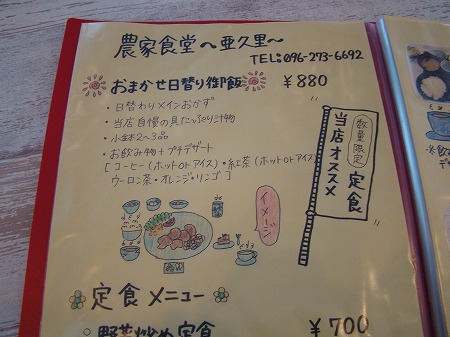 農家食堂～亜久里～
TEL:096-273-6692
おまかせ日替り御飯 ￥880
・日替わりメインおかず
・当店自慢の具たっぷり汁物
・小鉢2～3品
・お飲み物+プチデザート
[コーヒー(ホットorアイス)・紅茶(ホットorアイス)
ウーロン茶・オレンジ・リンゴ]
数量限定 定食
当店オススメ
イメージ
定食メニュー
○野菜炒め定食 ￥700